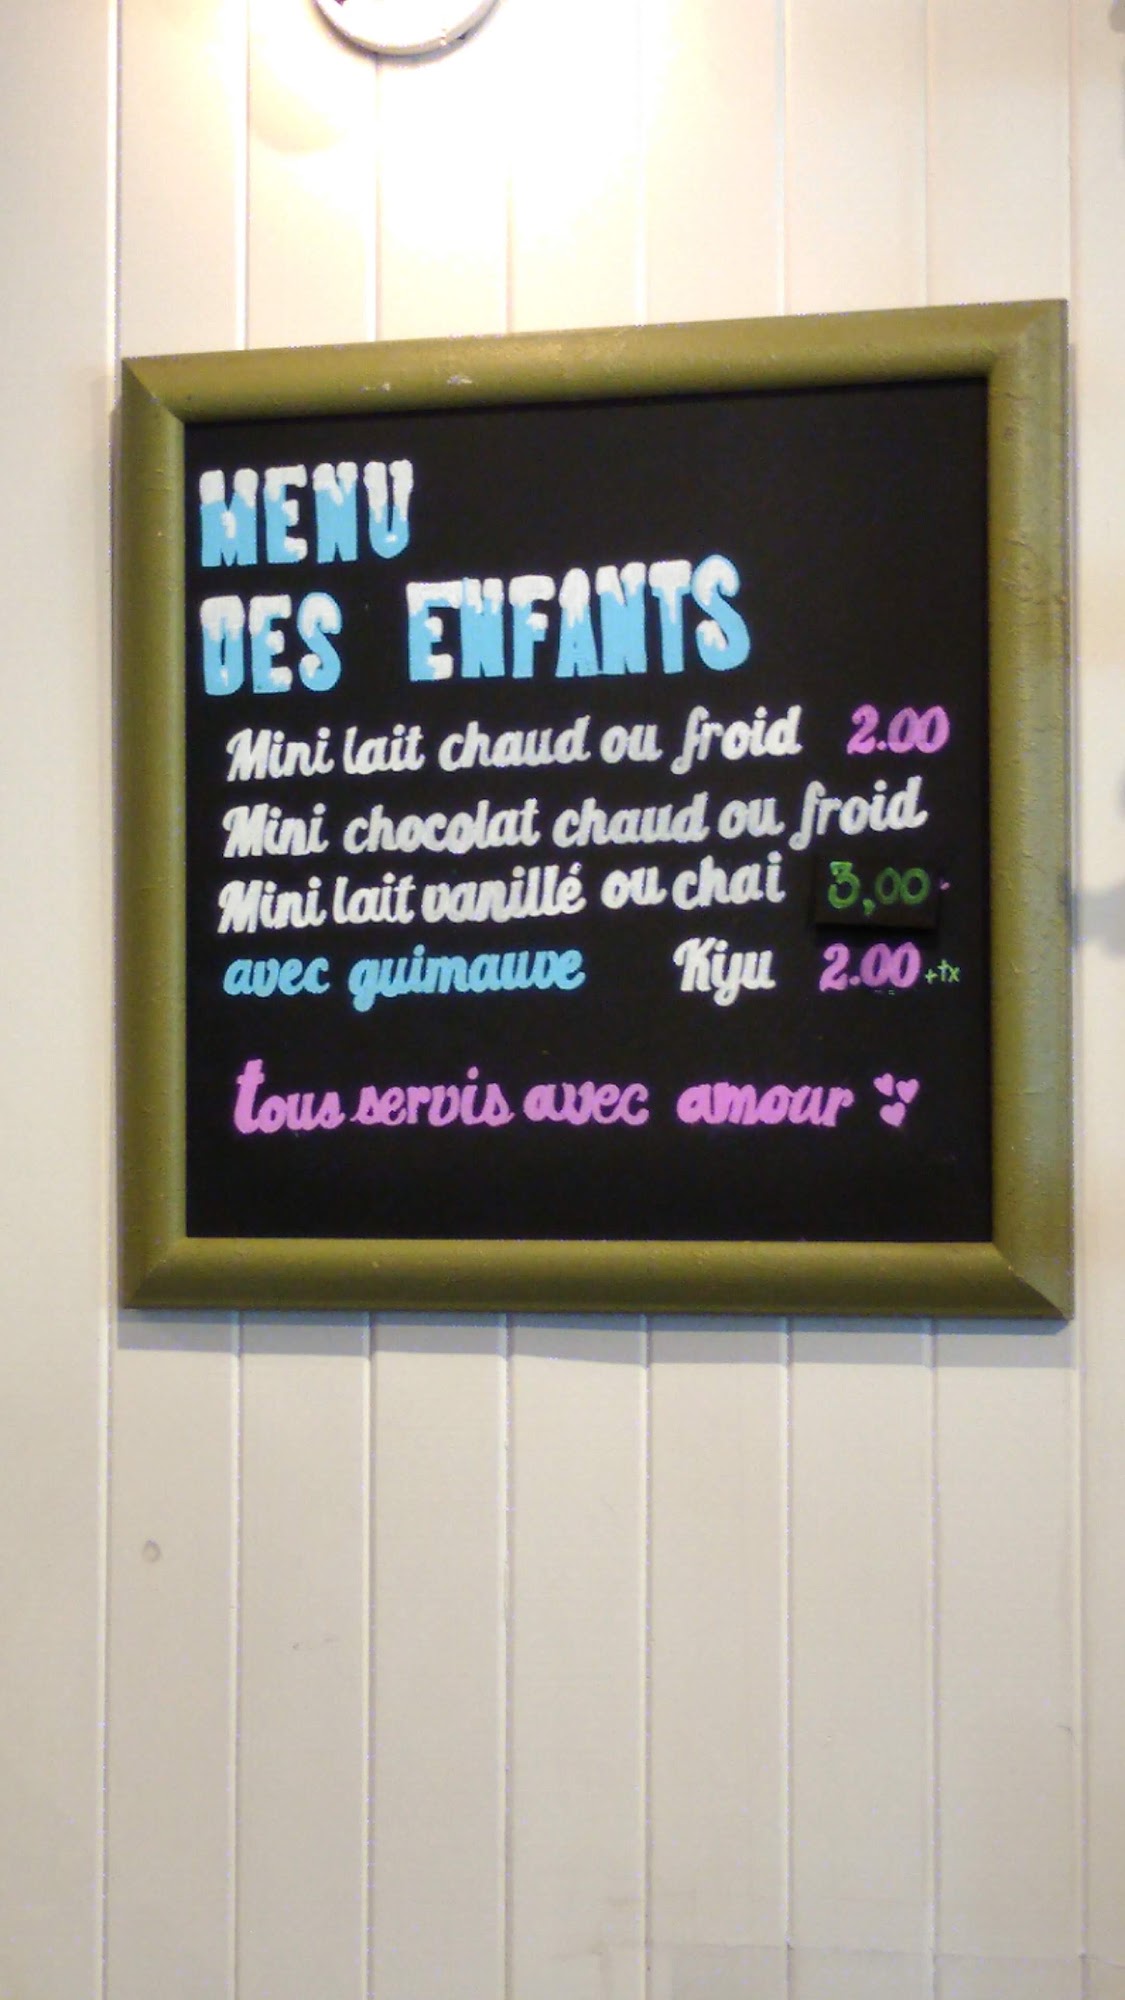 MENU
DES ENFANTS
Mini lait chaud ou froid 2.00
Mini chocolat chaud ou froid
Mini lait vanillé ou chai 3,00
avec guimauve Kiju 2.00 +tx
tous servis avec amour